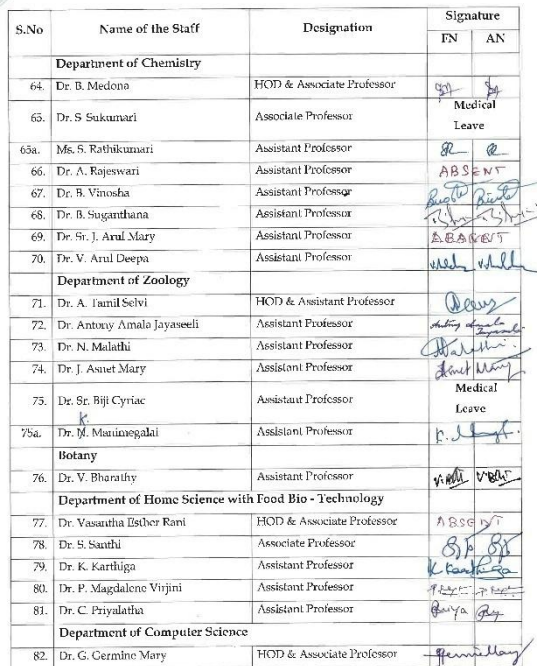 S.No Name of the Staff Designation Signature
FN AN
Department of Chemistry
64. Dr. B. Medona HOD & Associate Professor
65. Dr. S Sukumari Associate Professor Medical Leave
65a. Ms. S. Rathikumari Assistant Professor
66. Dr. A. Rajeswari Assistant Professor ABSENT
67. Dr. B. Vinosha Assistant Professor
68. Dr. B. Suganthana Assistant Professor
69. Dr. Sr. J. Arul Mary Assistant Professor
70. Dr. V. Arul Deepa Assistant Professor
Department of Zoology
71. Dr. A. Tamil Selvi HOD & Assistant Professor
72. Dr. Antony Amala Jayaseeli Assistant Professor Antony Amala
73. Dr. N. Malathi Assistant Professor
74. Dr. J. Asnet Mary Assistant Professor Asnet Mary
75. Dr. Sr. Biji Cyriac Assistant Professor Medical Leave
K.
75a. Dr. M. Manimegalai Assistant Professor
Botany
76. Dr. V. Bharathy Assistant Professor
Department of Home Science with Food Bio - Technology
77. Dr. Vasantha Esther Rani HOD & Associate Professor ABSENT
78. Dr. S. Santhi Associate Professor
79. Dr. K. Karthiga Assistant Professor K Karthiga
80. Dr. P. Magdalene Virjini Assistant Professor
81. Dr. C. Priyalatha Assistant Professor Priya
Department of Computer Science
82. Dr. G. Germine Mary HOD & Associate Professor